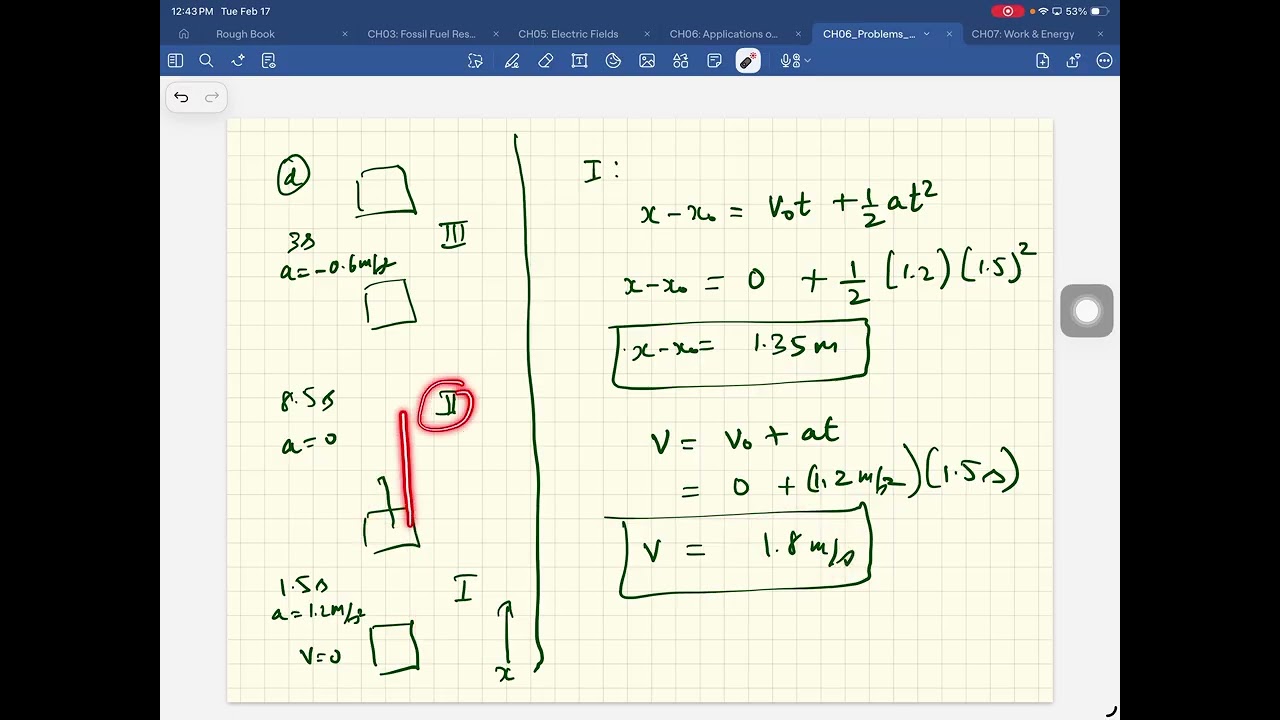 12:43 PM Tue Feb 17
53%
Rough Book
CH03: Fossil Fuel Res...
CH05: Electric Fields
CH06: Applications o...
CH06_Problems_...
CH07: Work & Energy
d
III
3s
a = -0.6 m/s²
8.5s
II
a = 0
1.5s
I
a = 1.2 m/s²
v = 0
x
I :
x - x₀ = v₀t + 1/2 at²
x - x₀ = 0 + 1/2 (1.2) (1.5)²
x - x₀ = 1.35 m
v = v₀ + at
= 0 + (1.2 m/s²) (1.5 s)
v = 1.8 m/s